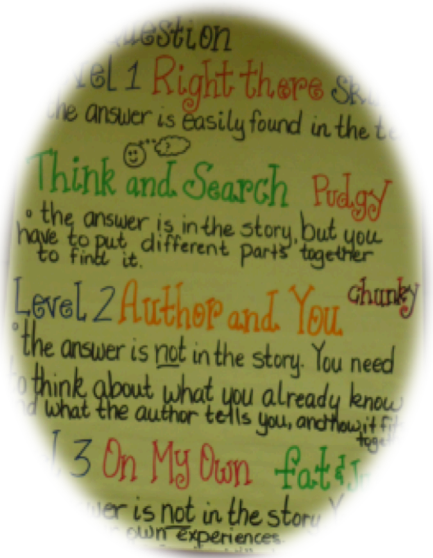 Level 1 Right there
the answer is easily found in the
Think and Search Pudgy
the answer is in the story, but you
have to put different parts together
to find it.
Level 2 Author and You chunky
the answer is not in the story. You need
think about what you already know
what the author tells you, and how it
3 On My Own fat &
is not in the story
own experiences.